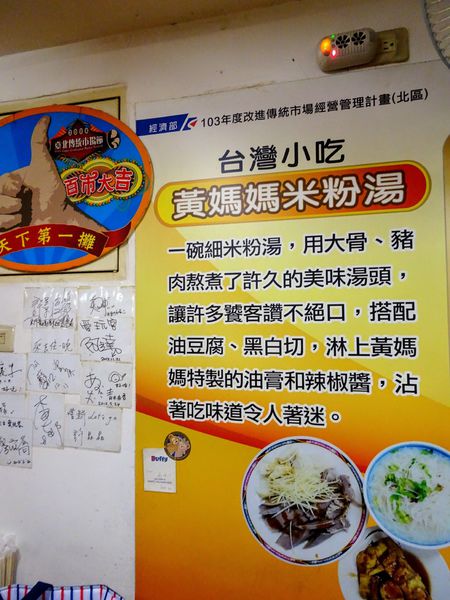 經濟部 103年度改進傳統市場經營管理計畫(北區)
台灣小吃
黃媽媽米粉湯
一碗細米粉湯，用大骨、豬
肉熬煮了許久的美味湯頭，
讓許多饕客讚不絕口，搭配
油豆腐、黑白切，淋上黃媽
媽特製的油膏和辣椒醬，沾
著吃味道令人著迷。
臺北傳統市場節
百市大吉
天下第一攤
Buffy